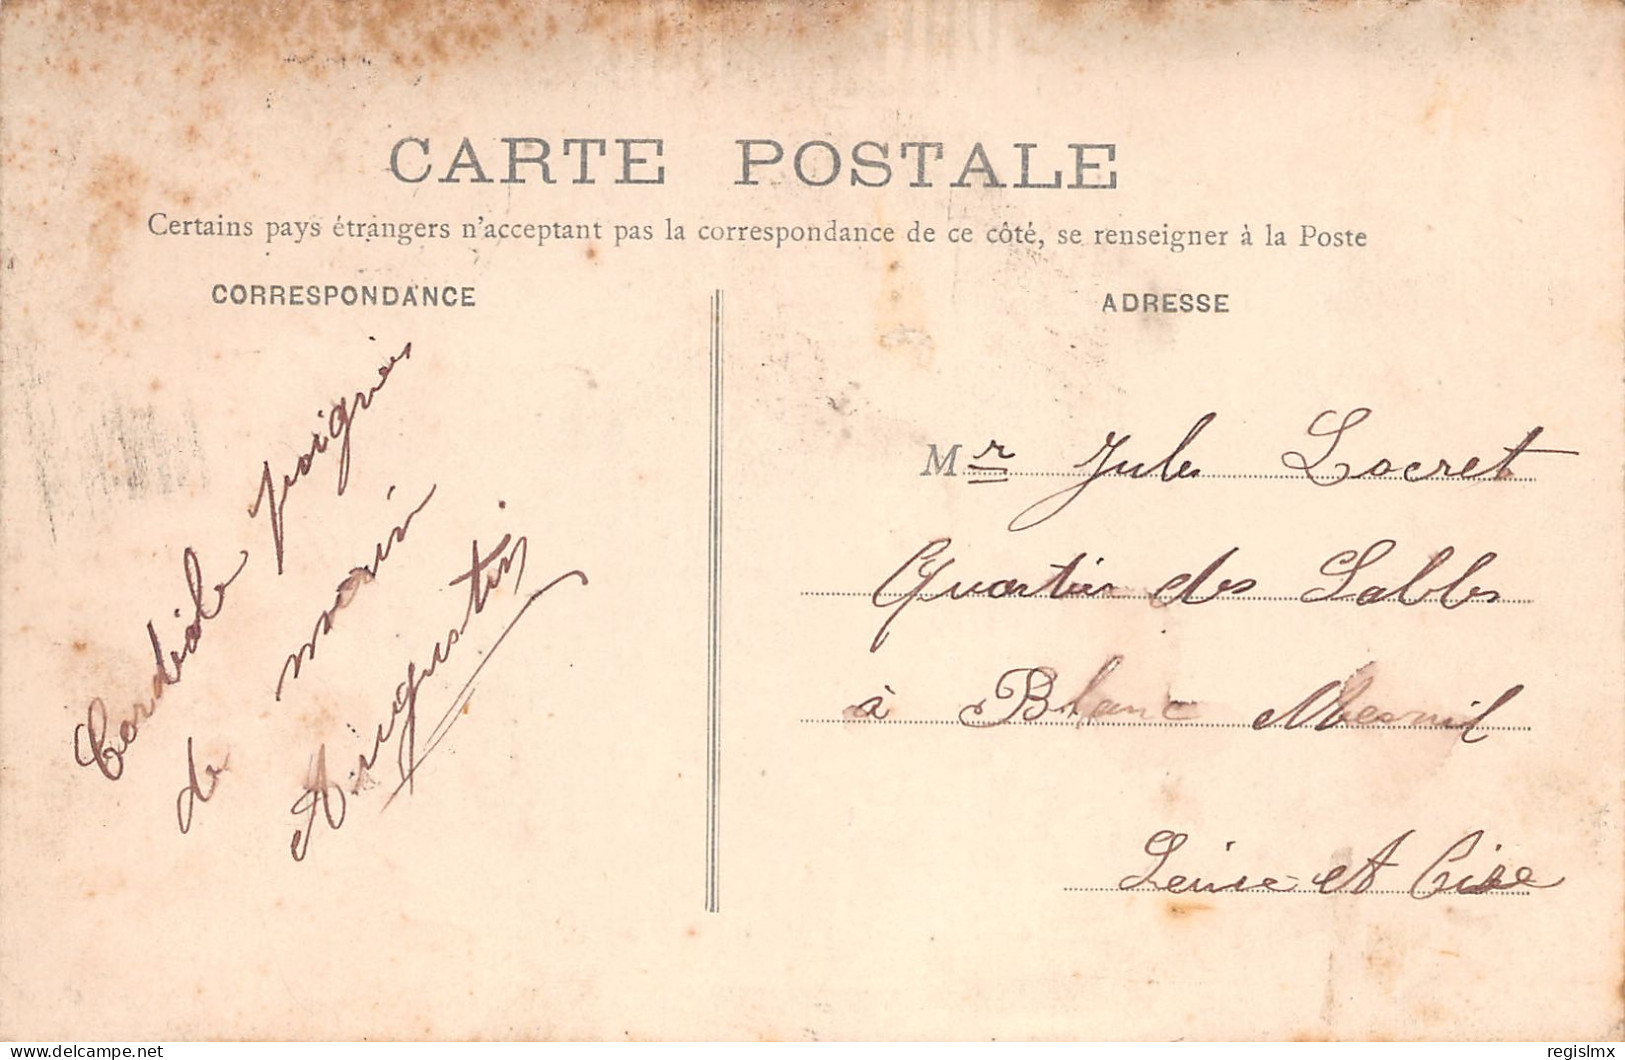 CARTE POSTALE
Certains pays étrangers n'acceptant pas la correspondance de ce côté, se renseigner à la Poste
CORRESPONDANCE
Cordiale poignées
de main
Augustin
ADRESSE
Mr Jules Locret
Quartier des Sables
à Blanc Mesnil
Seine et Oise
delcampe.net
regislmx